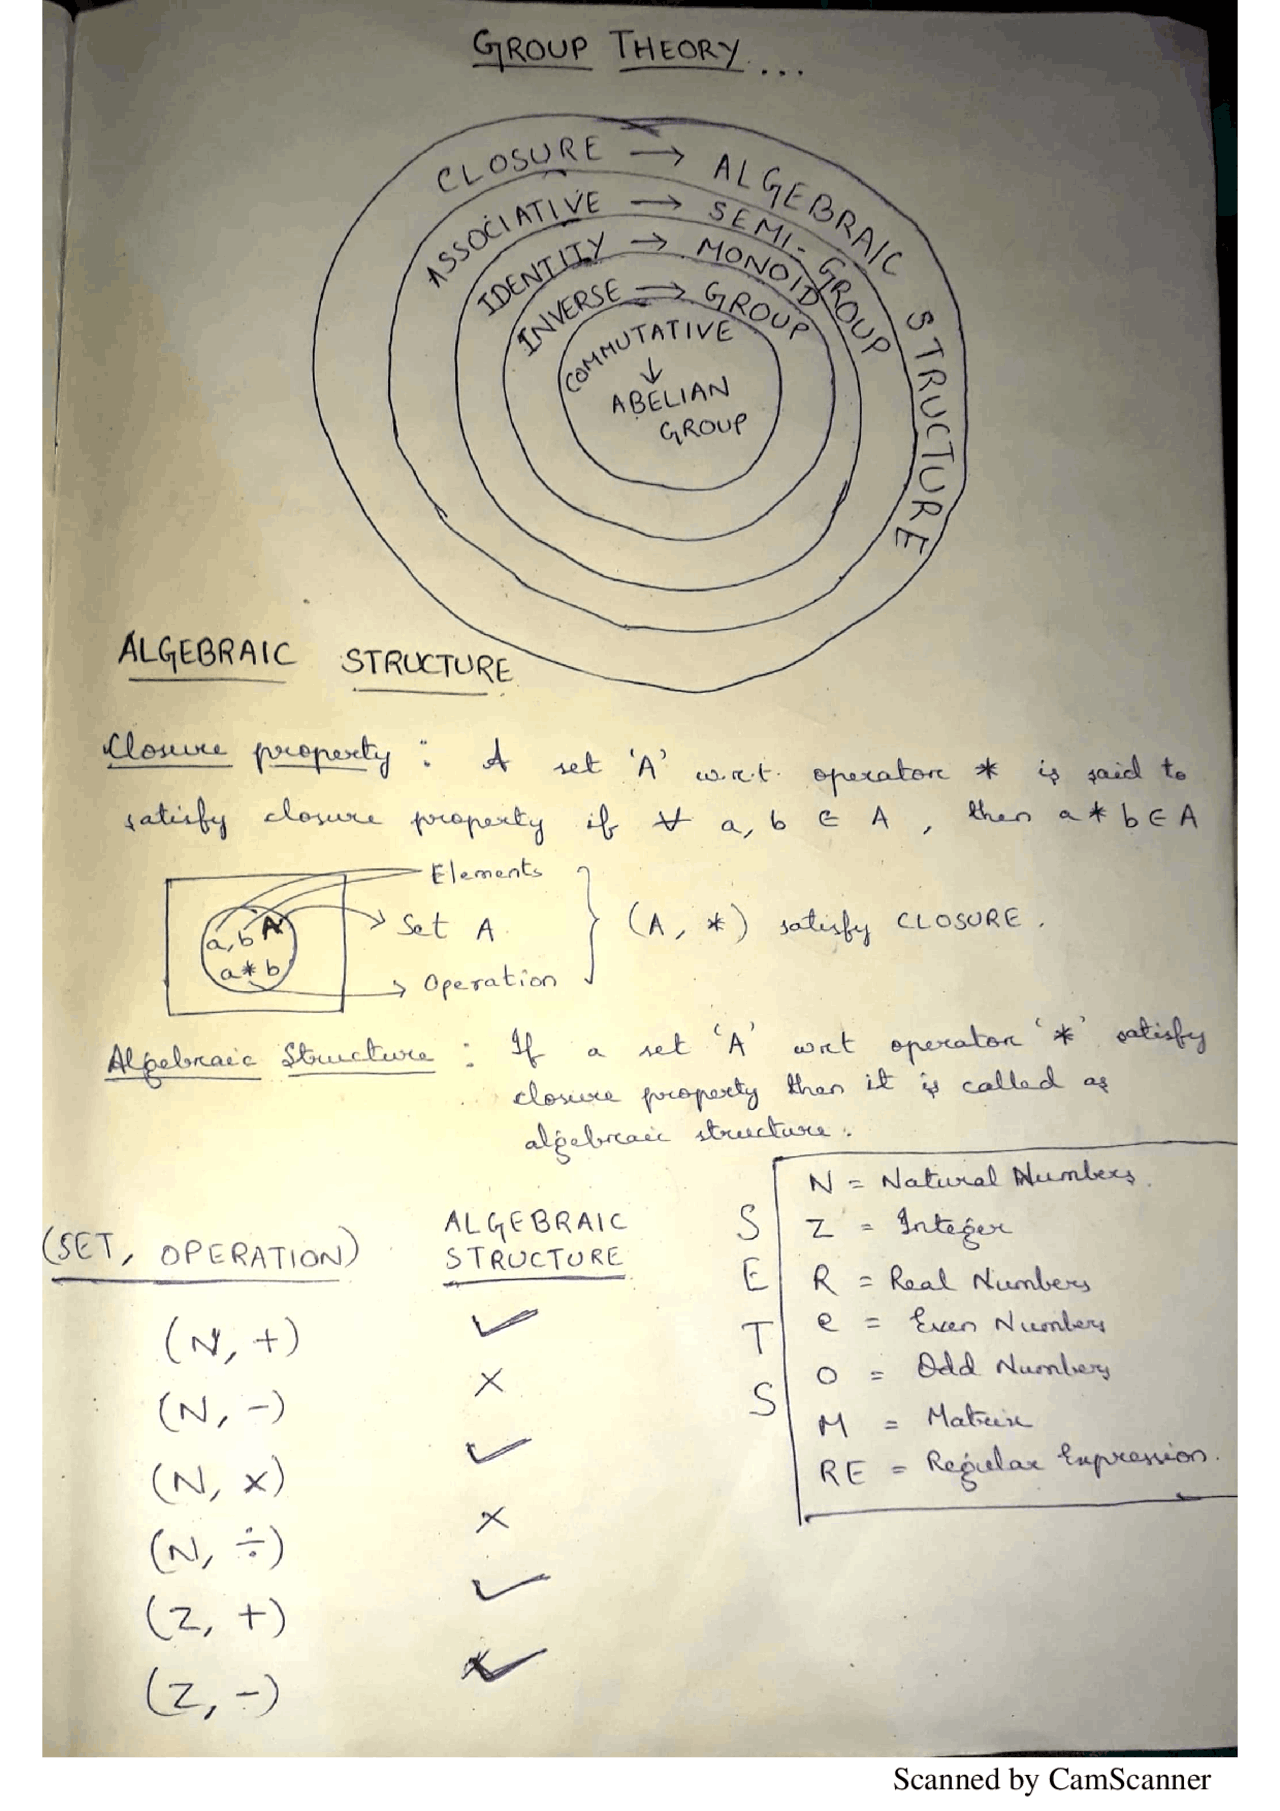 GROUP THEORY...
CLOSURE → ALGEBRAIC STRUCTURE
ASSOCIATIVE → SEMI-GROUP
IDENTITY → MONOID
INVERSE → GROUP
COMMUTATIVE
↓
ABELIAN
GROUP
ALGEBRAIC STRUCTURE
Closure property : A set 'A' w.r.t. operator * is said to
satisfy closure property if ∀ a, b ∈ A , then a * b ∈ A
Elements
a, b A
Set A
(A, *) satisfy CLOSURE.
a * b
Operation
Algebraic Structure : If a set 'A' wrt operator '*' satisfy
closure property then it is called as
algebraic structure.
(SET, OPERATION) ALGEBRAIC STRUCTURE
(N, +) ✓
(N, -) ×
(N, ×) ✓
(N, ÷) ×
(Z, +) ✓
(Z, -) ✓
SETS
N = Natural Numbers.
Z = Integer
R = Real Numbers
e = Even Numbers
O = Odd Numbers
M = Matrix
RE = Regular Expression.
Scanned by CamScanner